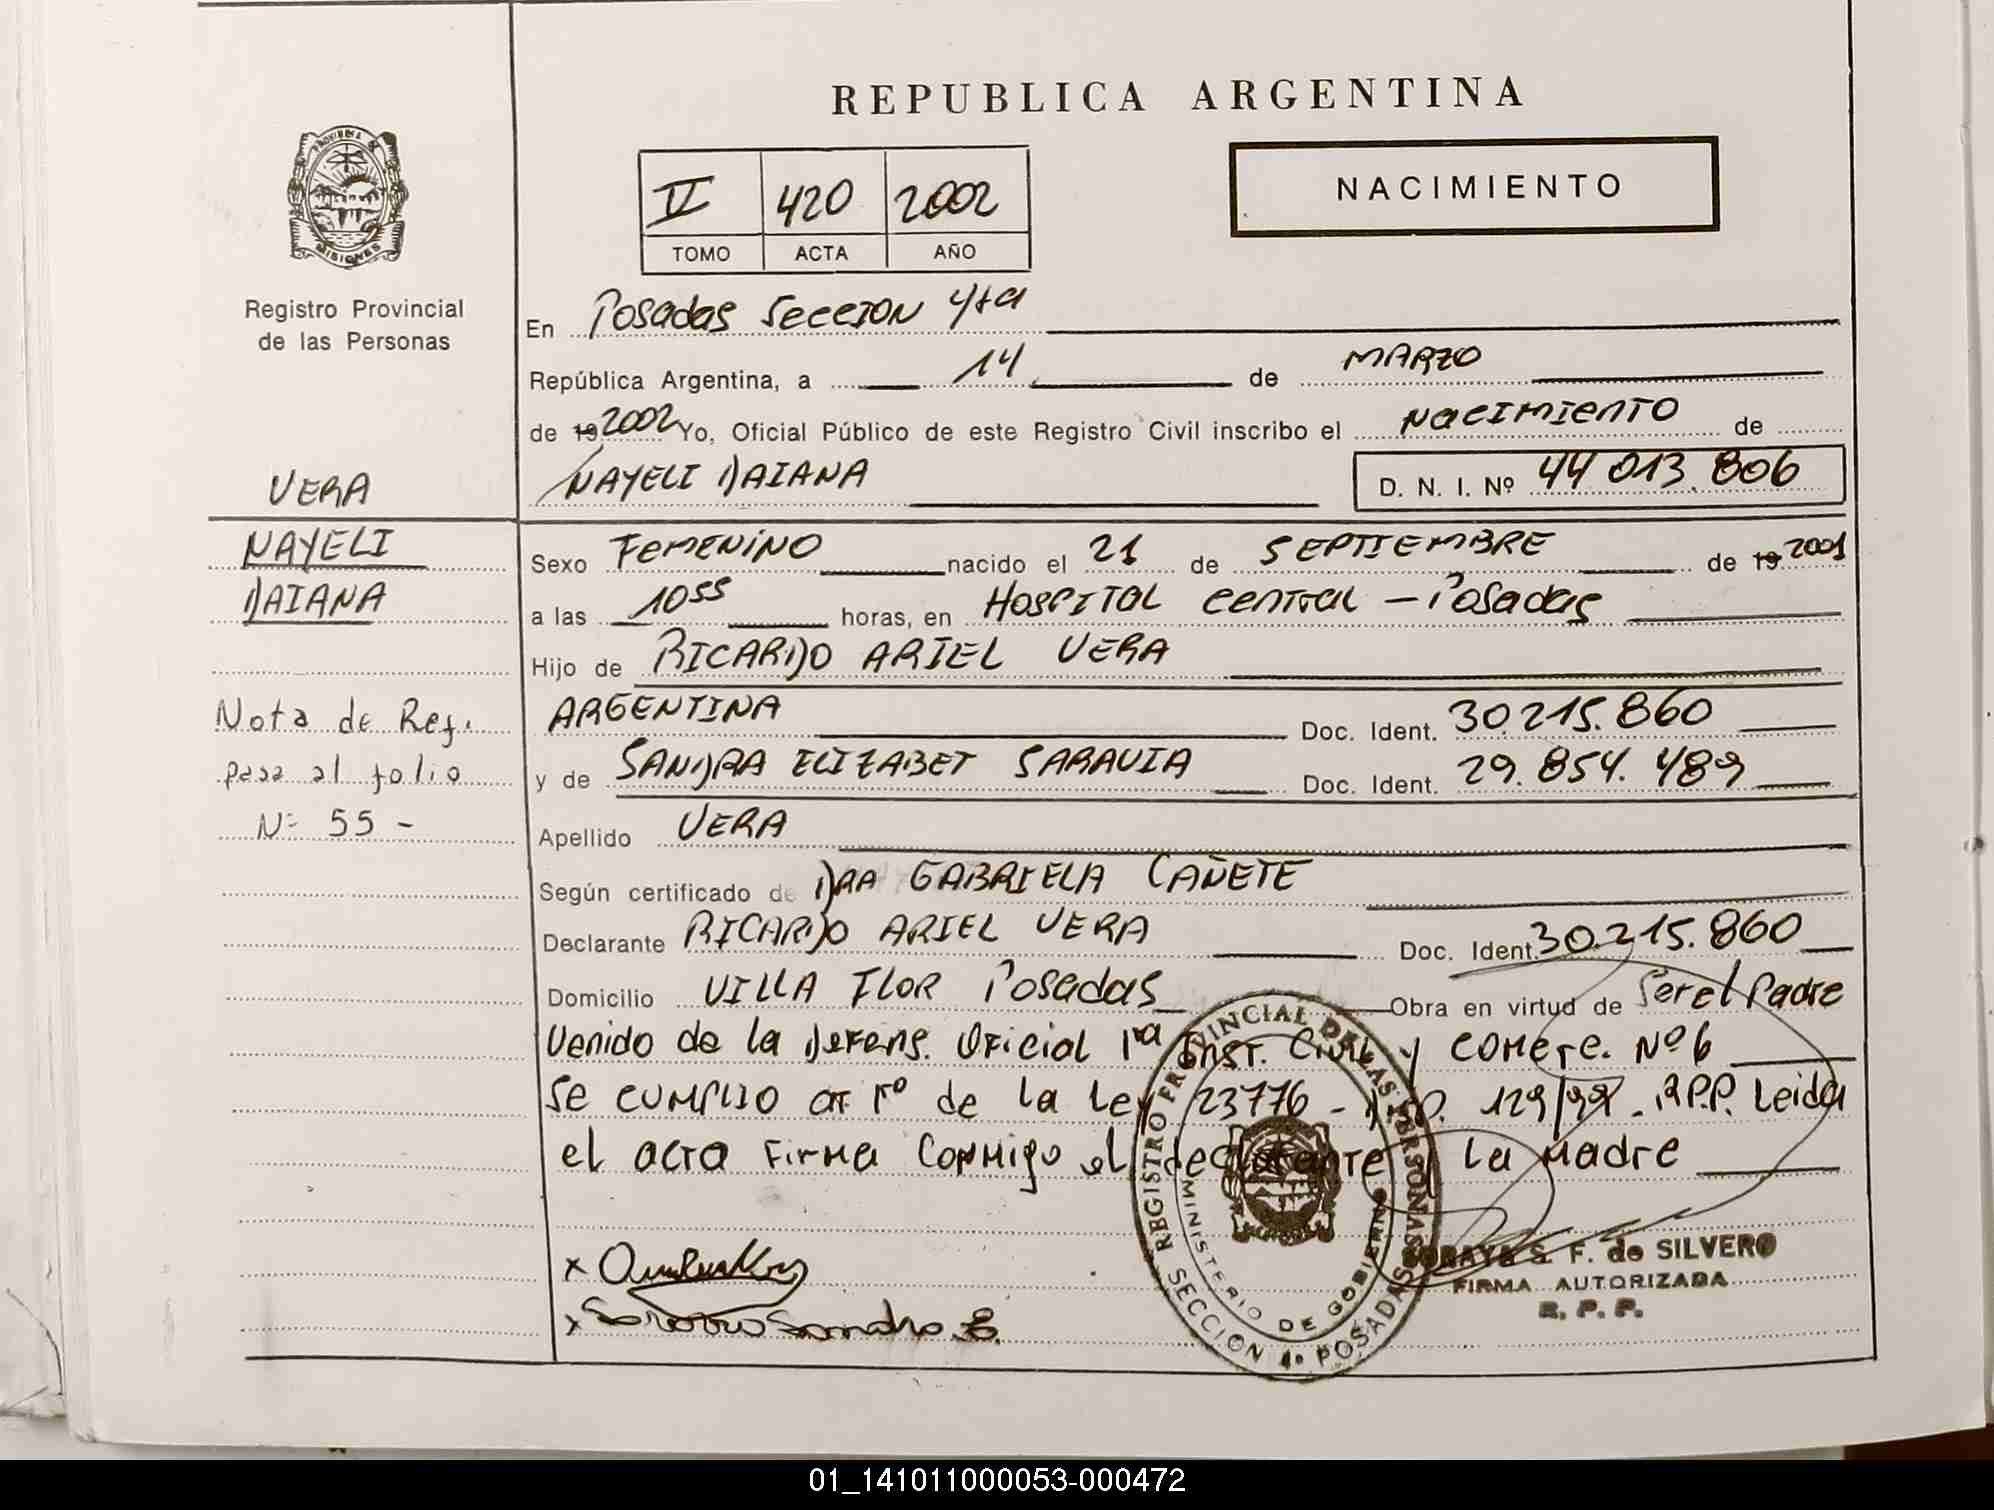 REPUBLICA ARGENTINA
PROVINCIA DE MISIONES
Registro Provincial
de las Personas
VI 420 2002
TOMO ACTA AÑO
NACIMIENTO
En Posadas Seccion 4ta
República Argentina, a 14 de MARZO
de 19 2002 Yo, Oficial Público de este Registro Civil inscribo el Nacimiento de
NAYELI DAIANA D. N. I. Nº 44 013.806
VERA
NAYELI
DAIANA
Nota de Ref.
pasa al folio
Nº 55 -
Sexo Femenino nacido el 21 de SEPTIEMBRE de 19 2001
a las 10 55 horas, en Hospital Central - Posadas
Hijo de RICARDO ARIEL VERA
ARGENTINA Doc. Ident. 30.215.860
y de SANDRA ELIZABET SARAVIA Doc. Ident. 29.854.489
Apellido VERA
Según certificado de DRA GABRIELA CAÑETE
Declarante RICARDO ARIEL VERA Doc. Ident. 30.215.860
Domicilio VILLA FLOR Posadas Obra en virtud de Ser el Padre
Venido de la Defens. Oficial 1ra Inst. Civil y Comerc. Nº 6
Se cumplio art 1º de la Ley 23776 - Disp. 129/99 - R.P.P. Leida
el acta Firma Conmigo el declarante y la Madre
REGISTRO PROVINCIAL DE LAS PERSONAS
MINISTERIO DE GOBIERNO
SECCION 4º POSADAS
SORAYA S. F. de SILVERO
FIRMA AUTORIZADA
R. P. P.
x
x Saravia Sandra E.
01_141011000053-000472